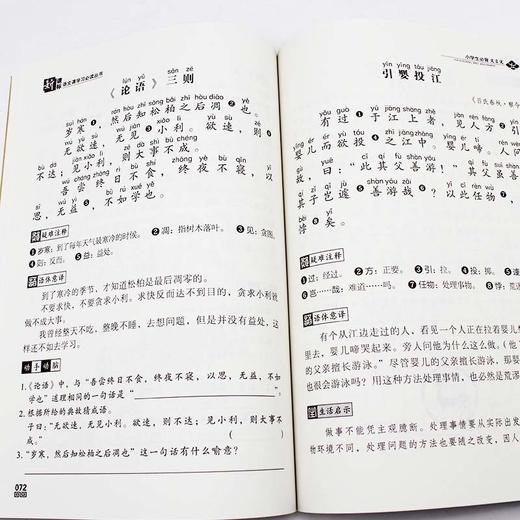 新
语文课学习必读丛书
lún yǔ sān zé
《论语》三则
suì hán rán hòu zhī sōng bǎi zhī hòu diāo
岁寒①，然后知松柏之后凋②也。
无欲速，无见③小利。欲速，则④
bù dá jiàn xiǎo lì zé dà shì bù chéng
不达；见小利，则大事不成。
吾尝终日不食，终夜不寝，以
思，无益⑤，不如学也。
疑难注释
①岁寒：到了每年天气最寒冷的时候。 ②凋：指树木落叶。 ③见：贪图。
④则：反而。 ⑤益：益处。
语体意译
到了寒冷的季节，才知道松柏是最后凋零的。
不要求快，不要贪求小利。求快反而达不到目的，贪求小利就
做不成大事。
我曾经整天不吃，整晚不睡，去想问题，但是并没有益处，这
样还不如去学习。
动手动脑
1.《论语》中，与“吾尝终日不食，终夜不寝，以思，无益，不如
学也”道理相同的一句话是“
2. 根据所给的典故猜成语。
子曰：“无欲速，无见小利。欲速，则不达；见小利，则大事不
成。”（ ）
3. “岁寒，然后知松柏之后凋也”这一句话有什么喻意？
072
小学生必背文言文
yǐn yīng tóu jiāng
引婴投江
《吕氏春秋·
有过①于江上者，见人方②引③
婴儿而欲投④之江中。婴儿啼。人问
其故。曰：“此其父善游。”其父虽善游，
其子岂遽善游哉⑥？以此任物⑦，
悖⑧矣。
疑难注释
①过：经过。 ②方：正要。 ③引：拉。 ④投：掷。
⑥岂……哉：难道……吗。 ⑦任物：处理事物。 ⑧悖：荒
语体意译
有个从江边走过的人，看见一个人正在拉着婴儿
里去，婴儿啼哭起来。旁人问他为什么这么做。（他
的父亲擅长游泳。”尽管婴儿的父亲擅长游泳，那婴儿
也很会游泳吗？用这种方法处理事情，也必然是荒谬
生活启示
做事不能凭主观臆断。处理事情要从实际出发
物环境不同，处理问题的方法也要随之改变，因人